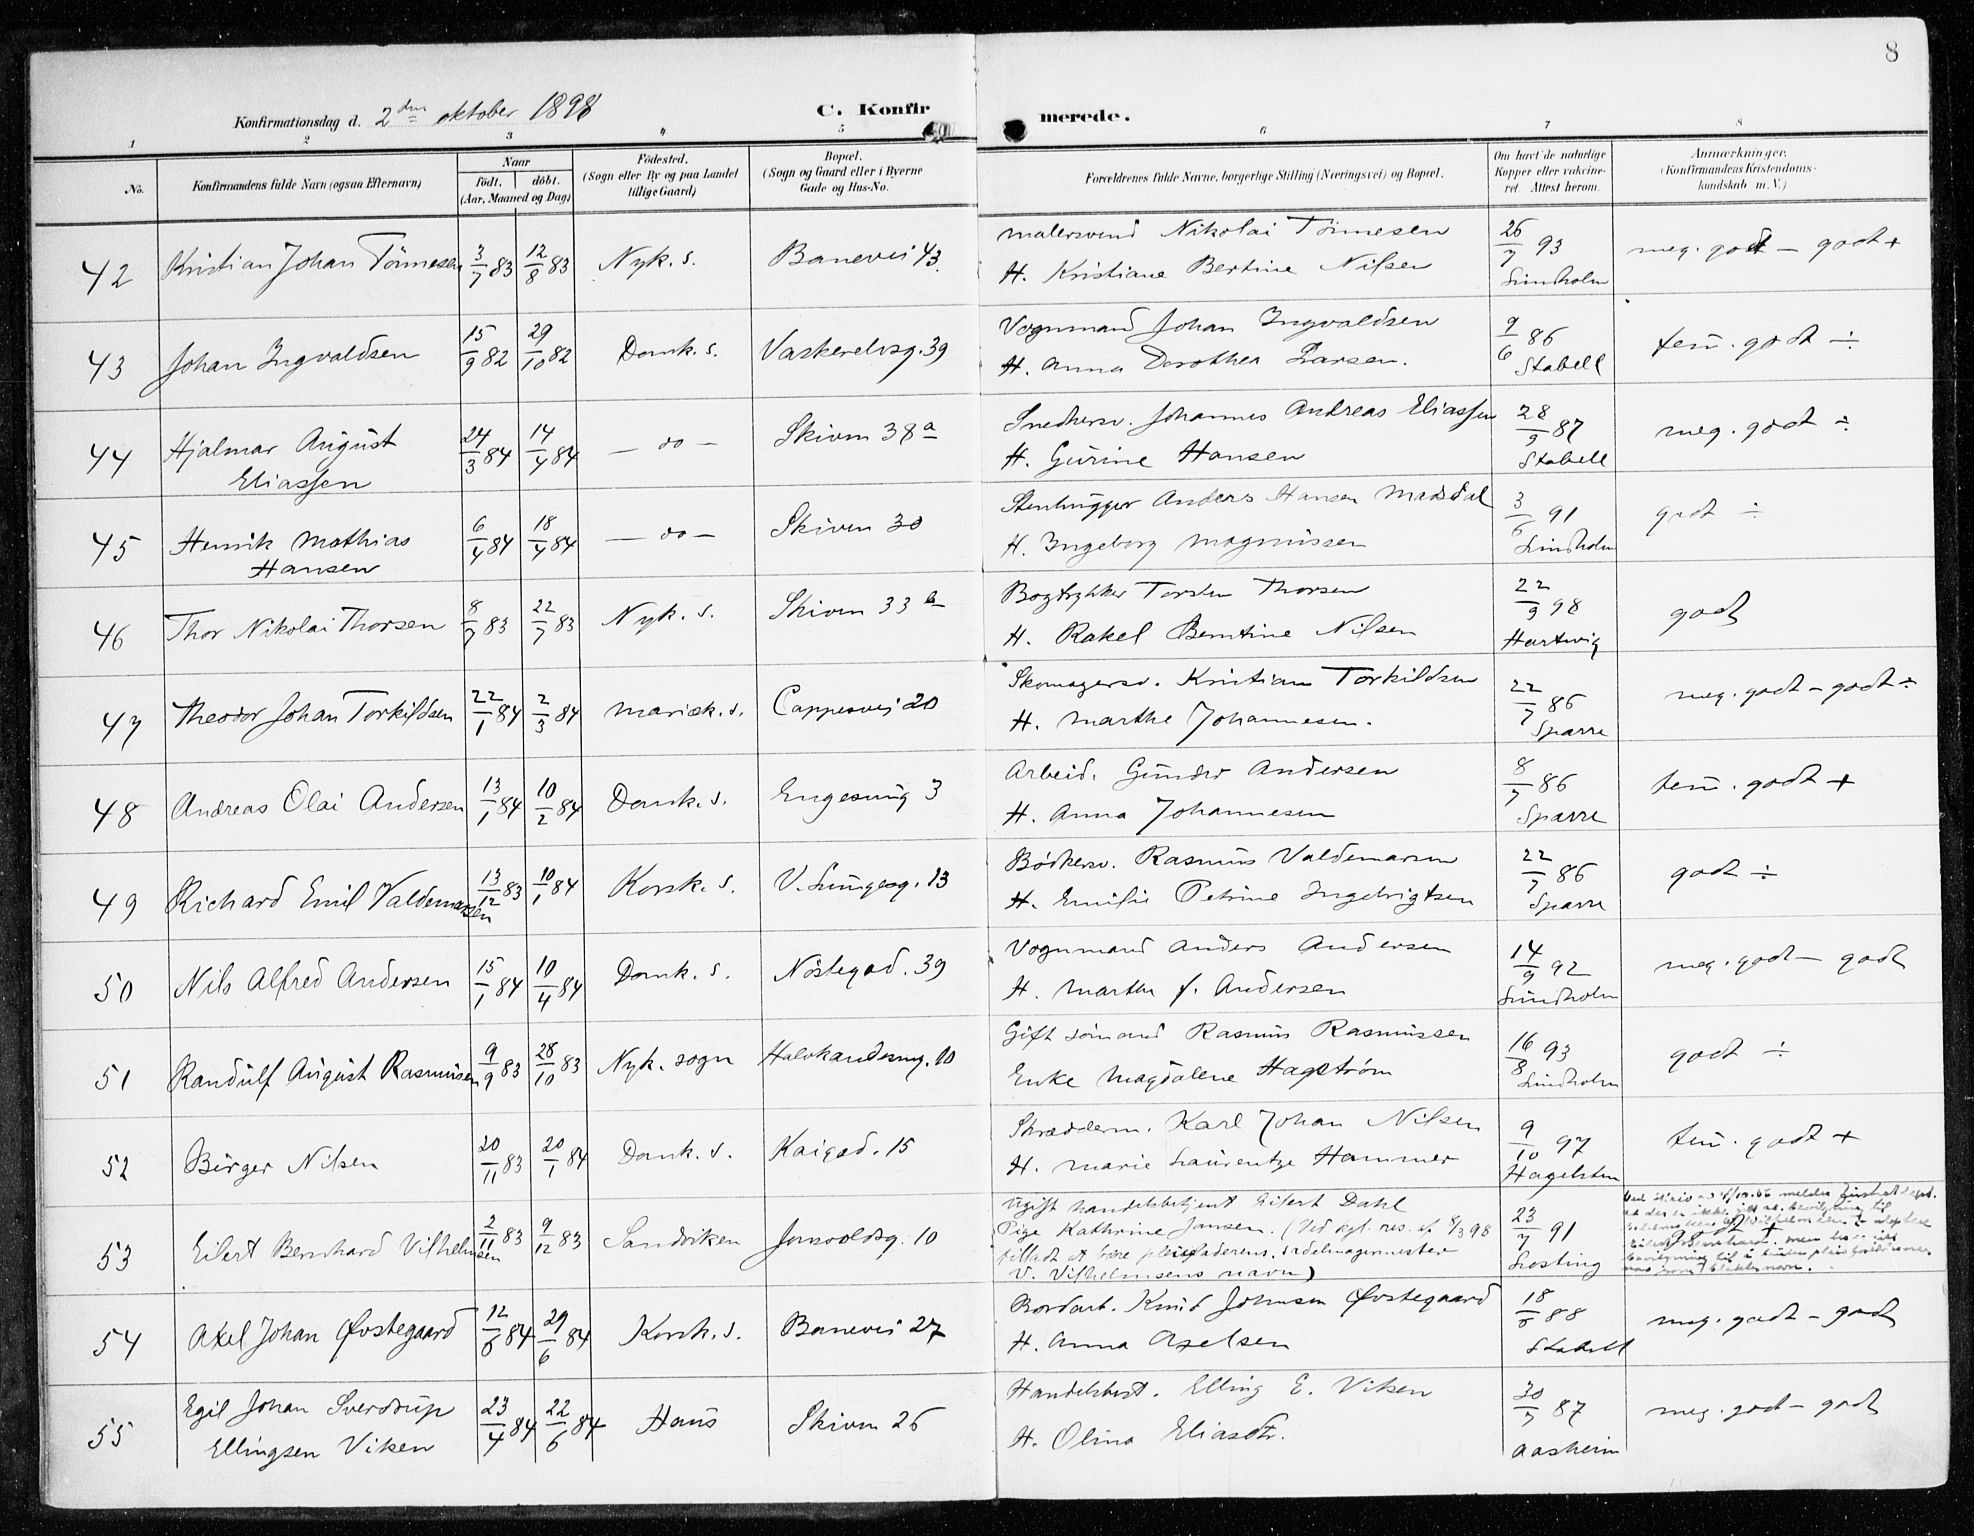 8
Konfirmationsdag d. 2den oktober 1898
C. Konfirmerede.
1 2 3 4 5 6 7 8
No.
Konfirmandens fulde Navn (ogsaa Efternavn)
Naar
født. døbt.
(Aar, Maaned og Dag)
Fødested.
(Sogn eller By og paa Landet
tillige Gaard)
Bopæl.
(Sogn og Gaard eller i Byerne
Gade og Hus-No.
Forældrenes fulde Navne, borgerlige Stilling (Næringsvei) og Bopæl.
Om havt de naturlige
Kopper eller vakcine-
ret. Attest herom.
Anmærkninger.
(Konfirmandens Kristendoms-
kundskab m. V.)
42 Kristian Johan Tönnesen 3/7 83 12/8 83 Nyk. s. Banevei 43.
malersvend Nikolai Tönnesen
H. Kristiane Bertine Nilsen
26/7 93
Lindholm
meg. godt – godt +
43 Johan Ingvaldsen 15/9 82 29/10 82 Domk. s. Vaskerelvsg. 39
Vognmand Johan Ingvaldsen
H. Anna Dorothea Larsen.
9/6 86
Stabell
tem. godt ÷
44 Hjalmar August
Eliassen
24/3 84 14/4 84 – do – Skiven 38 a
Snedkersv. Johannes Andreas Eliassen
H. Gurine Hansen
28/9 87
Stabell
meg. godt ÷
45 Henrik Mathias
Hansen
6/4 84 18/4 84 – do – Skiven 30
Stenhugger Anders Hansen Madsdal
H. Ingeborg Magnussen
3/6 91
Lindholm
godt ÷
46 Thor Nikolai Thorsen 8/7 83 22/7 83 Nyk. s. Skiven 33
Bogtrykker Torsten Thorsen
H. Rakel Berntine Nilsen
22/9 98
Hartwig
godt
47 Theodor Johan Torkildsen 22/1 84 2/3 84 Mariek. s. Cappesvei 20
Skomagersv. Kristian Torkildsen
H. Marthe Johannesen.
22/7 86
Sparre
meg. godt – godt ÷
48 Andreas Olai Andersen 13/1 84 10/2 84 Domk. s. Engesmug 3
Arbeid. Gunder Andersen
H. Anna Johannesen
8/7 86
Sparre
tem. godt +
49 Richard Emil Valdemarsen 13/12 83 10/1 84 Korsk. s. V. Lungesg. 13
Bödkersv. Rasmus Valdemarsen
H. Emilie Petrine Ingebrigtsen
22/7 86
Sparre
godt ÷
50 Nils Alfred Andersen 15/1 84 10/4 84 Domk. s. Nöstegad. 39
Vognmand Anders Andersen
H. Marthe f. Andersen
14/9 92
Lindholm
meg. godt – godt
51 Randulf August Rasmussen 9/9 83 28/10 83 Nyk. sogn Halvkandesmg. 10
Gift sömand Rasmus Rasmussen
Enke Magdalene Hagström
16/8 93
Lindholm
godt ÷
52 Birger Nilsen 20/11 83 20/1 84 Domk. s. Kaigad. 15
Skrædderm. Karl Johan Nilsen
H. Marie Laurentze Hammer
9/10 97
Hagelsten
tem. godt +
53 Eilert Bernhard Vilhelmsen 2/11 83 9/12 83 Sandviken Jonsvoldsg. 10
Ugift handelsbetjent Eilert Dahl
Pige Kathrine Jansen. (Ved kgl. res. af /3 98
tilladt at bære pleiefaderens, sadelmagermester
V. Vilhelmsens navn)
23/7 91
Losting
godt +
54 Axel Johan Østegaard 84 29/6 84 Korsk. s. Banevei 27
Bordarb. Knud Johnsen Østegaard
H. Anna Axelsen
88
Stabell
meg. godt – godt
55 Egil Johan Sverdrup
Ellingsen Viken
23/4 84 22/6 84 Haus Skiven 26
Handelsbest. Elling E. Viken
H. Olina Eliasdtr.
30/7 87
Aasheim
meg. godt – godt